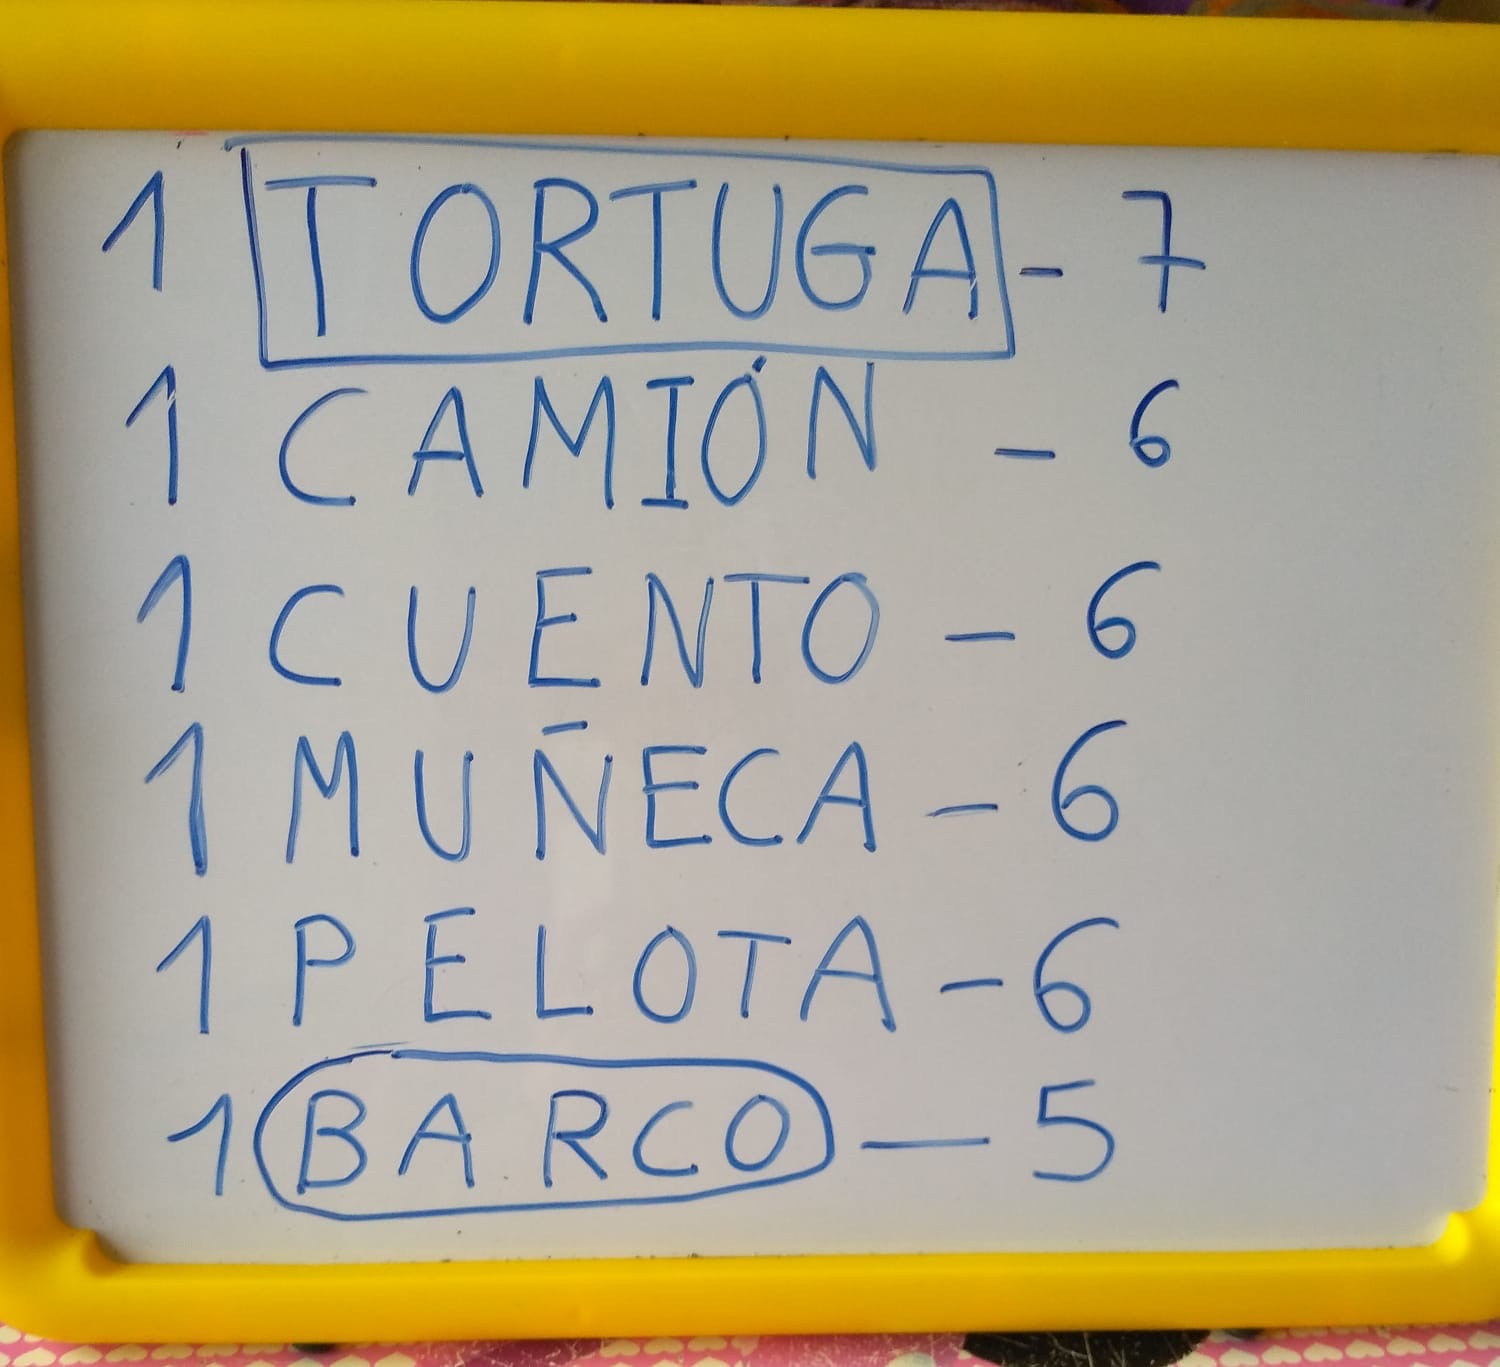 1 TORTUGA - 7
1 CAMIÓN - 6
1 CUENTO - 6
1 MUÑECA - 6
1 PELOTA - 6
1 BARCO - 5